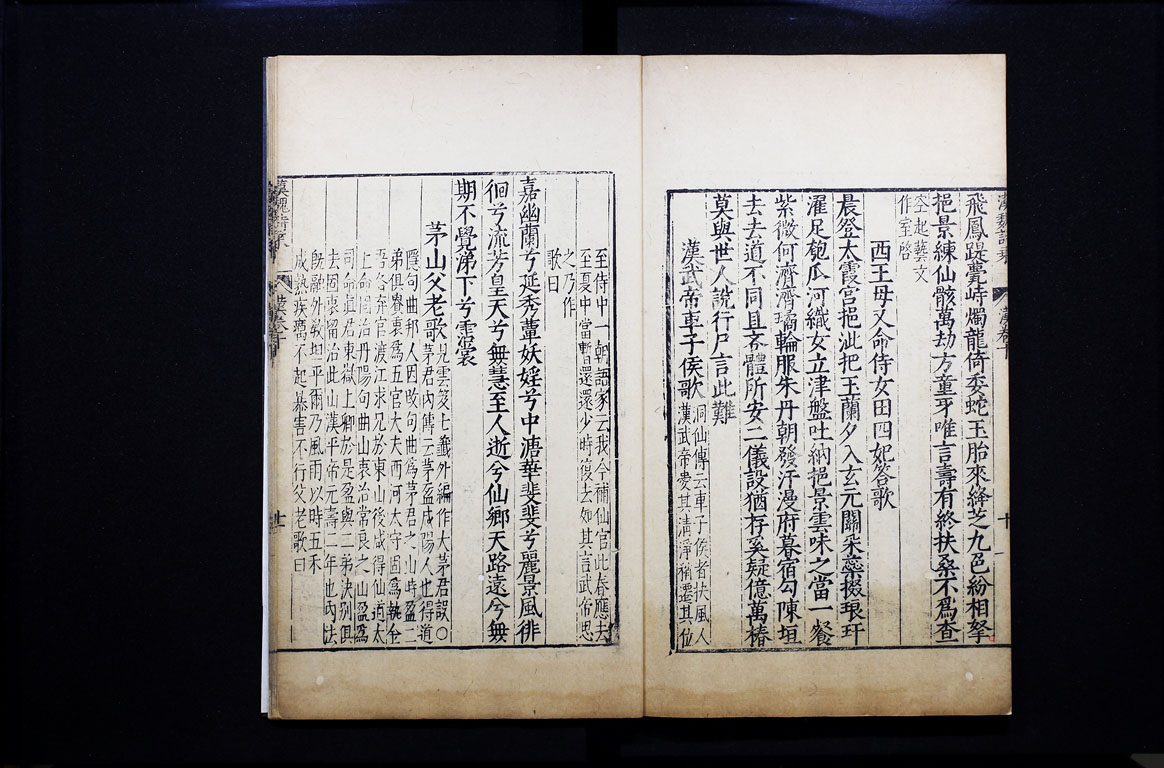 飛鳳踶甍峙燭龍倚委蛇玉胎來絳芝九色紛相拏
挹景練仙骸萬劫方童牙唯言壽有終扶桑不爲查
空起藝文
作室啓
西王母又命侍女田四妃答歌
晨登太霞宮挹此把玉蘭夕入玄元闕采蘂掇琅玕
濯足匏瓜河織女立津盤吐納挹景雲味之當一餐
紫微何濟濟璚輪服朱丹朝發汗漫府暮宿勾陳垣
去去道不同且各體所安二儀設猶存奚疑億萬椿
莫與世人說行尸言此難
漢武帝車子侯歌
洞仙傳云車子侯者扶風人
漢武帝愛其清淨稍遷其位
至侍中一朝語家云我今補仙官此春應去
至夏中當暫還還少時復去如其言武帝思
之乃作
歌曰
嘉幽蘭兮延秀蕈妖婬兮中溏華斐斐兮麗景風徘
徊兮流芳皇天兮無慧至人逝兮仙鄉天路遠兮無
期不覺涕下兮霑裳
茅山父老歌
見雲笈七籤外編作大茅君誤〇
茅君內傳云茅盈咸陽人也得道
隱句曲邦人因改句曲爲茅君之山時盈二
弟俱貴衷爲五官大夫西河太守固爲執金
吾各弃官渡江求兄於東山後咸得仙道太
上命固治丹陽句曲山衷治常良之山盈爲
司命眞君東嶽上卿於是盈與二弟決別俱
去固衷留治此山漢平帝元壽二年也內法
旣融外敎坦平爾乃風雨以時五禾
成熟疾癘不起暴害不行父老歌曰